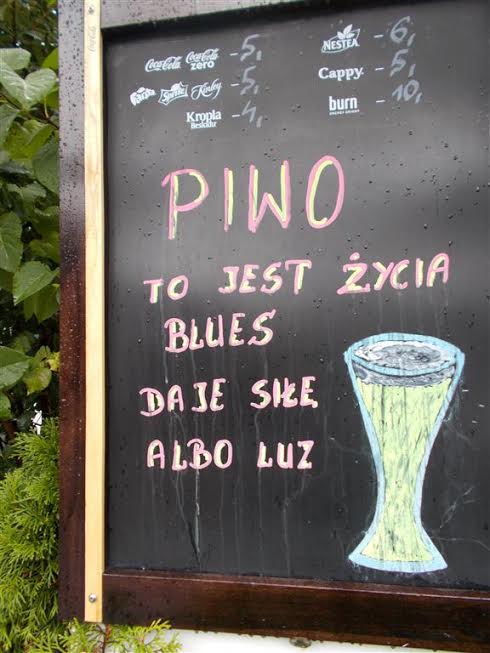 Coca-Cola Coca-Cola zero - 5,
Fanta Sprite Kinley - 5,
Kropla Beskidu - 4,
NESTEA - 6,
Cappy - 5,
burn ENERGY DRINK - 10,
PIWO
TO JEST ŻYCIA
BLUES
DAJE SIŁĘ
ALBO LUZ
Coca-Cola